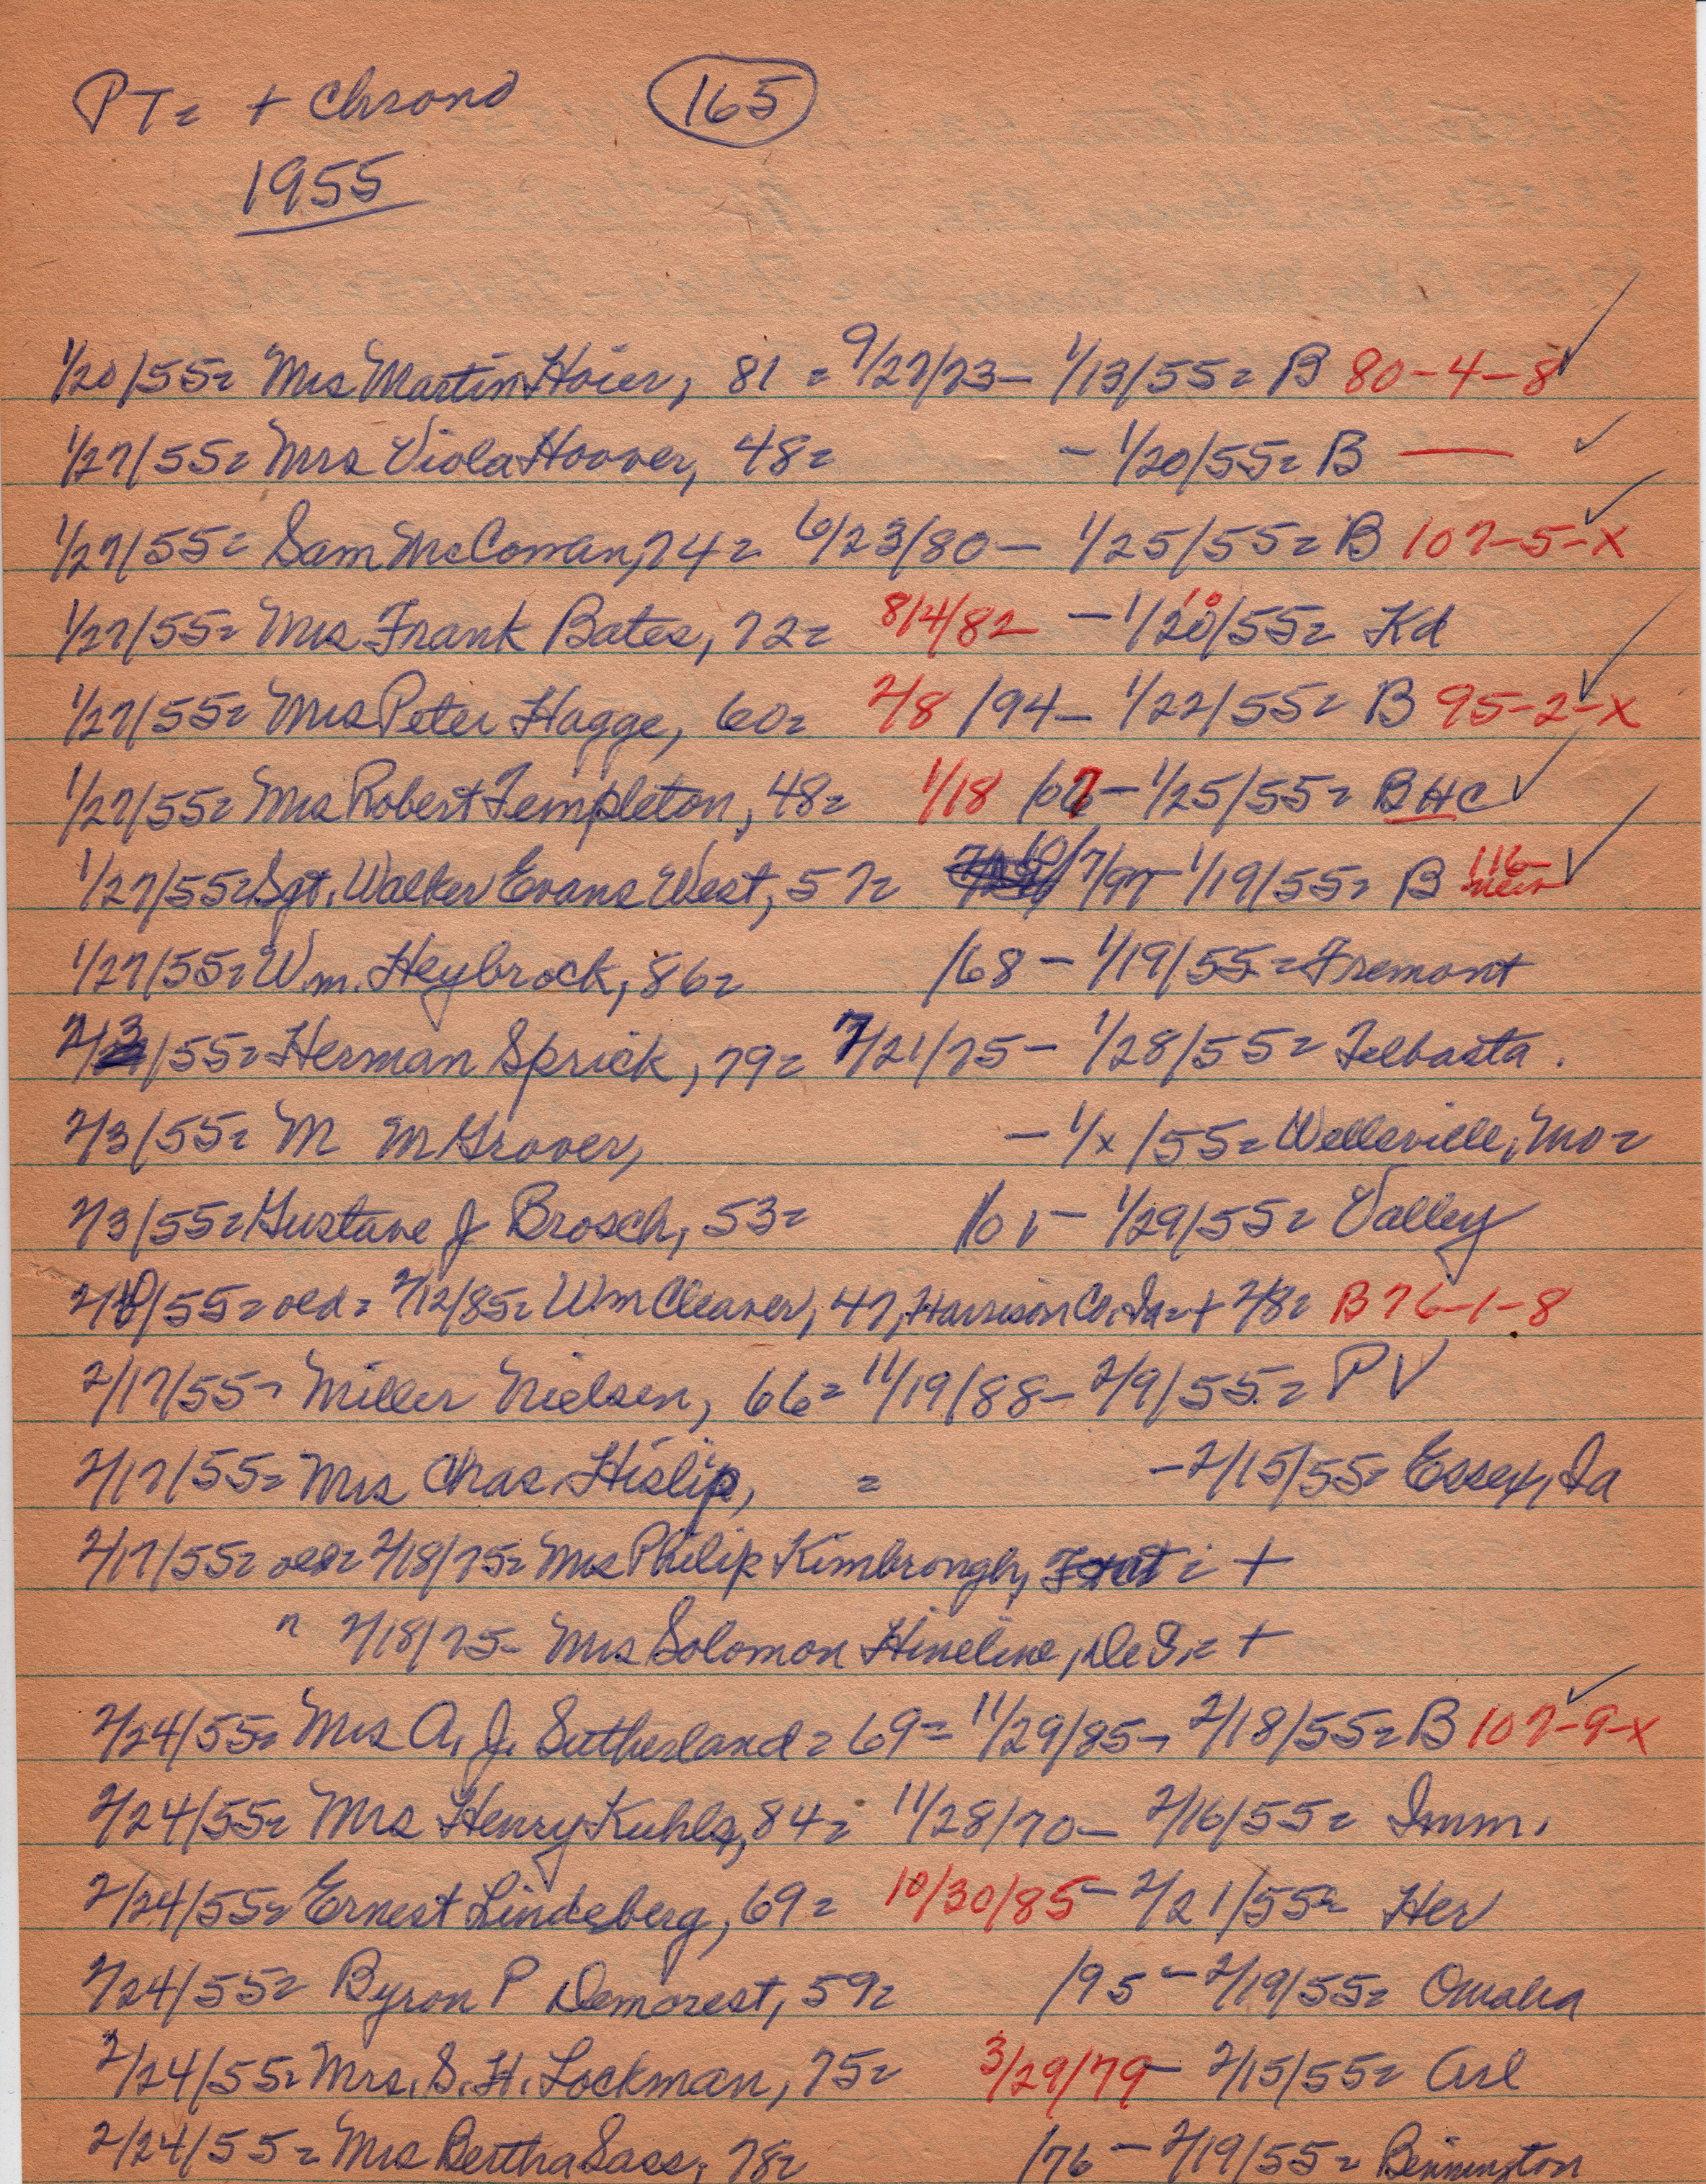 PT= + Chrono 165
1955
1/20/55= Mrs Martin Hoier, 81 = 9/27/73– 1/13/55= B 80-4-8 ✓
1/27/55= Mrs Viola Hoover, 48= – 1/20/55= B — ✓
1/27/55= Sam McComan, 74= 6/23/80– 1/25/55= B 107-5-X ✓
1/27/55= Mrs Frank Bates, 72= 8/4/82 – 1/20/55= Kd
1/27/55= Mrs Peter Hagge, 60= 2/8 /94– 1/22/55= B 95-2-X ✓
1/27/55= Mrs Robert Templeton, 48= 1/18 /07– 1/25/55= B HC ✓
1/27/55= Sgt. Walker Evans West, 57= 10/7/97– 1/19/55= B 116– new ✓
1/27/55= Wm. Heybrock, 86= /68 – 1/19/55= Fremont
2/3/55= Herman Sprick, 79= 7/21/75– 1/28/55= Telbasta.
2/3/55= M M Grover, – 1/x /55= Wellsville, Mo=
2/3/55= Gustave J Brosch, 53= /01– 1/29/55= Valley
2/10/55= old= 2/12/85= Wm Cleaver, 47, Harrison Co, Ia=+ 2/8= B 76-1-8
2/17/55= Miller Nielsen, 66= 11/19/88– 2/9/55= PV
2/17/55= Mrs Chas. Hislip, = – 2/15/55= Essex, Ia
2/17/55= old= 2/18/75= Mrs Philip Kimbrough, = +
" 2/18/75– Mrs Solomon Hineline, DeS,= +
2/24/55= Mrs A. J. Sutherland= 69= 11/29/85– 2/18/55= B 107-9-X ✓
2/24/55= Mrs Henry Kuhls, 84= 11/28/70– 2/16/55= Imm.
2/24/55= Ernest Lindeberg, 69= 10/30/85– 2/21/55= Her
2/24/55= Byron P Demorest, 59= /95 – 2/19/55= Omaha
2/24/55= Mrs. S. H. Lockman, 75= 3/29/79– 2/15/55= Arl
2/24/55= Mrs Bertha Sass, 78= /76 – 2/19/55= Bennington